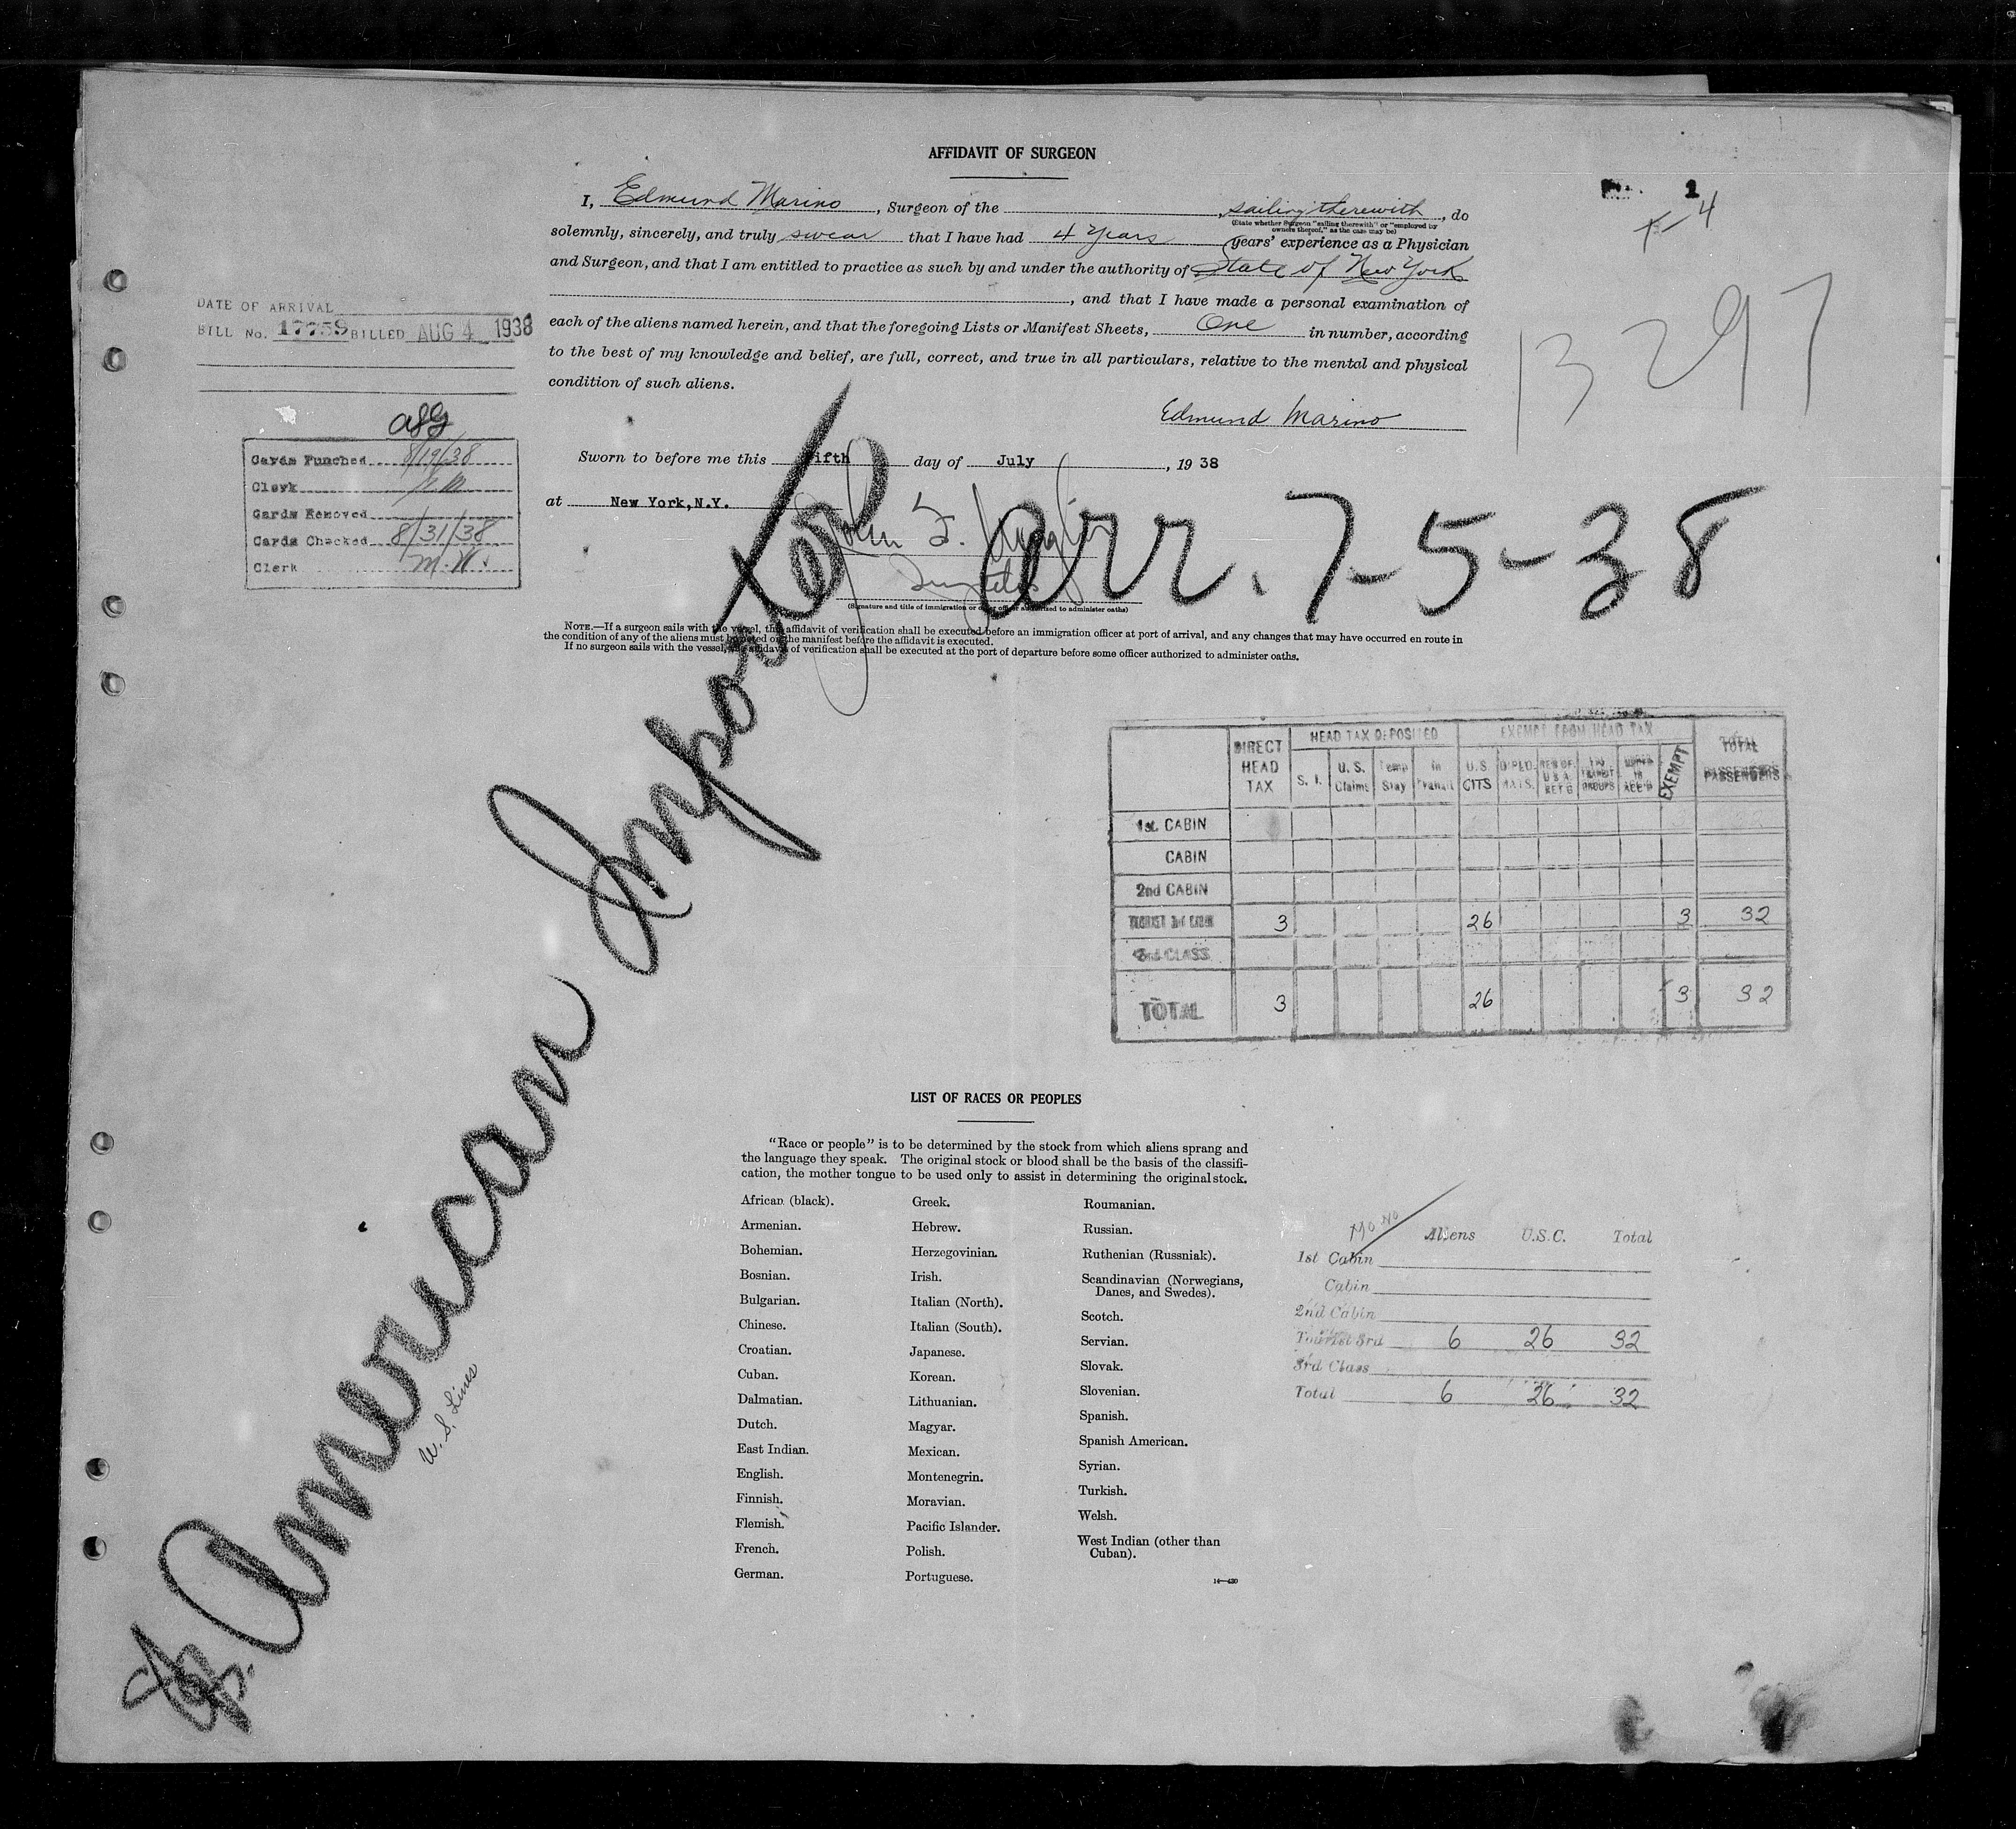 AFFIDAVIT OF SURGEON
1
4
I, Edmund Marino, Surgeon of the , sailing therewith, do
(State whether Surgeon "sailing therewith" or "employed by
owners thereof," as the case may be)
solemnly, sincerely, and truly swear that I have had 4 Years years' experience as a Physician
and Surgeon, and that I am entitled to practice as such by and under the authority of State of New York
, and that I have made a personal examination of
each of the aliens named herein, and that the foregoing Lists or Manifest Sheets, One in number, according
to the best of my knowledge and belief, are full, correct, and true in all particulars, relative to the mental and physical
condition of such aliens.
13297
Edmund Marino
Sworn to before me this fifth day of July, 1938
at New York, N.Y.
John F.
(Signature and title of immigration or other officer authorized to administer oaths)
NOTE.—If a surgeon sails with the vessel, this affidavit of verification shall be executed before an immigration officer at port of arrival, and any changes that may have occurred en route in
the condition of any of the aliens must be noted on the manifest before the affidavit is executed.
If no surgeon sails with the vessel, the affidavit of verification shall be executed at the port of departure before some officer authorized to administer oaths.
DATE OF ARRIVAL
BILL No. 17759 BILLED AUG 4 1938
Cards Punched 8/19/38
Clerk
Cards Removed
Cards Checked 8/31/38
Clerk M.W.
American Importer arr. 7-5-38
U. S. Lines
DIRECT HEAD TAX
HEAD TAX DEPOSITED
EXEMPT FROM HEAD TAX
TOTAL PASSENGERS
S. I.
U. S. Claims
Temp Stay
In Transit
U.S. CITS
DIPLO-MATS.
EXEMPT
1st. CABIN
CABIN
2nd CABIN
TOURIST 3rd CABIN 3 26 3 32
3rd CLASS
TOTAL 3 26 3 32
LIST OF RACES OR PEOPLES
"Race or people" is to be determined by the stock from which aliens sprang and
the language they speak. The original stock or blood shall be the basis of the classifi-
cation, the mother tongue to be used only to assist in determining the original stock.
African (black).
Armenian.
Bohemian.
Bosnian.
Bulgarian.
Chinese.
Croatian.
Cuban.
Dalmatian.
Dutch.
East Indian.
English.
Finnish.
Flemish.
French.
German.
Greek.
Hebrew.
Herzegovinian.
Irish.
Italian (North).
Italian (South).
Japanese.
Korean.
Lithuanian.
Magyar.
Mexican.
Montenegrin.
Moravian.
Pacific Islander.
Polish.
Portuguese.
Roumanian.
Russian.
Ruthenian (Russniak).
Scandinavian (Norwegians,
Danes, and Swedes).
Scotch.
Servian.
Slovak.
Slovenian.
Spanish.
Spanish American.
Syrian.
Turkish.
Welsh.
West Indian (other than
Cuban).
14—430
Aliens U.S.C. Total
1st Cabin
Cabin
2nd Cabin
Tourist 3rd 6 26 32
3rd Class
Total 6 26 32